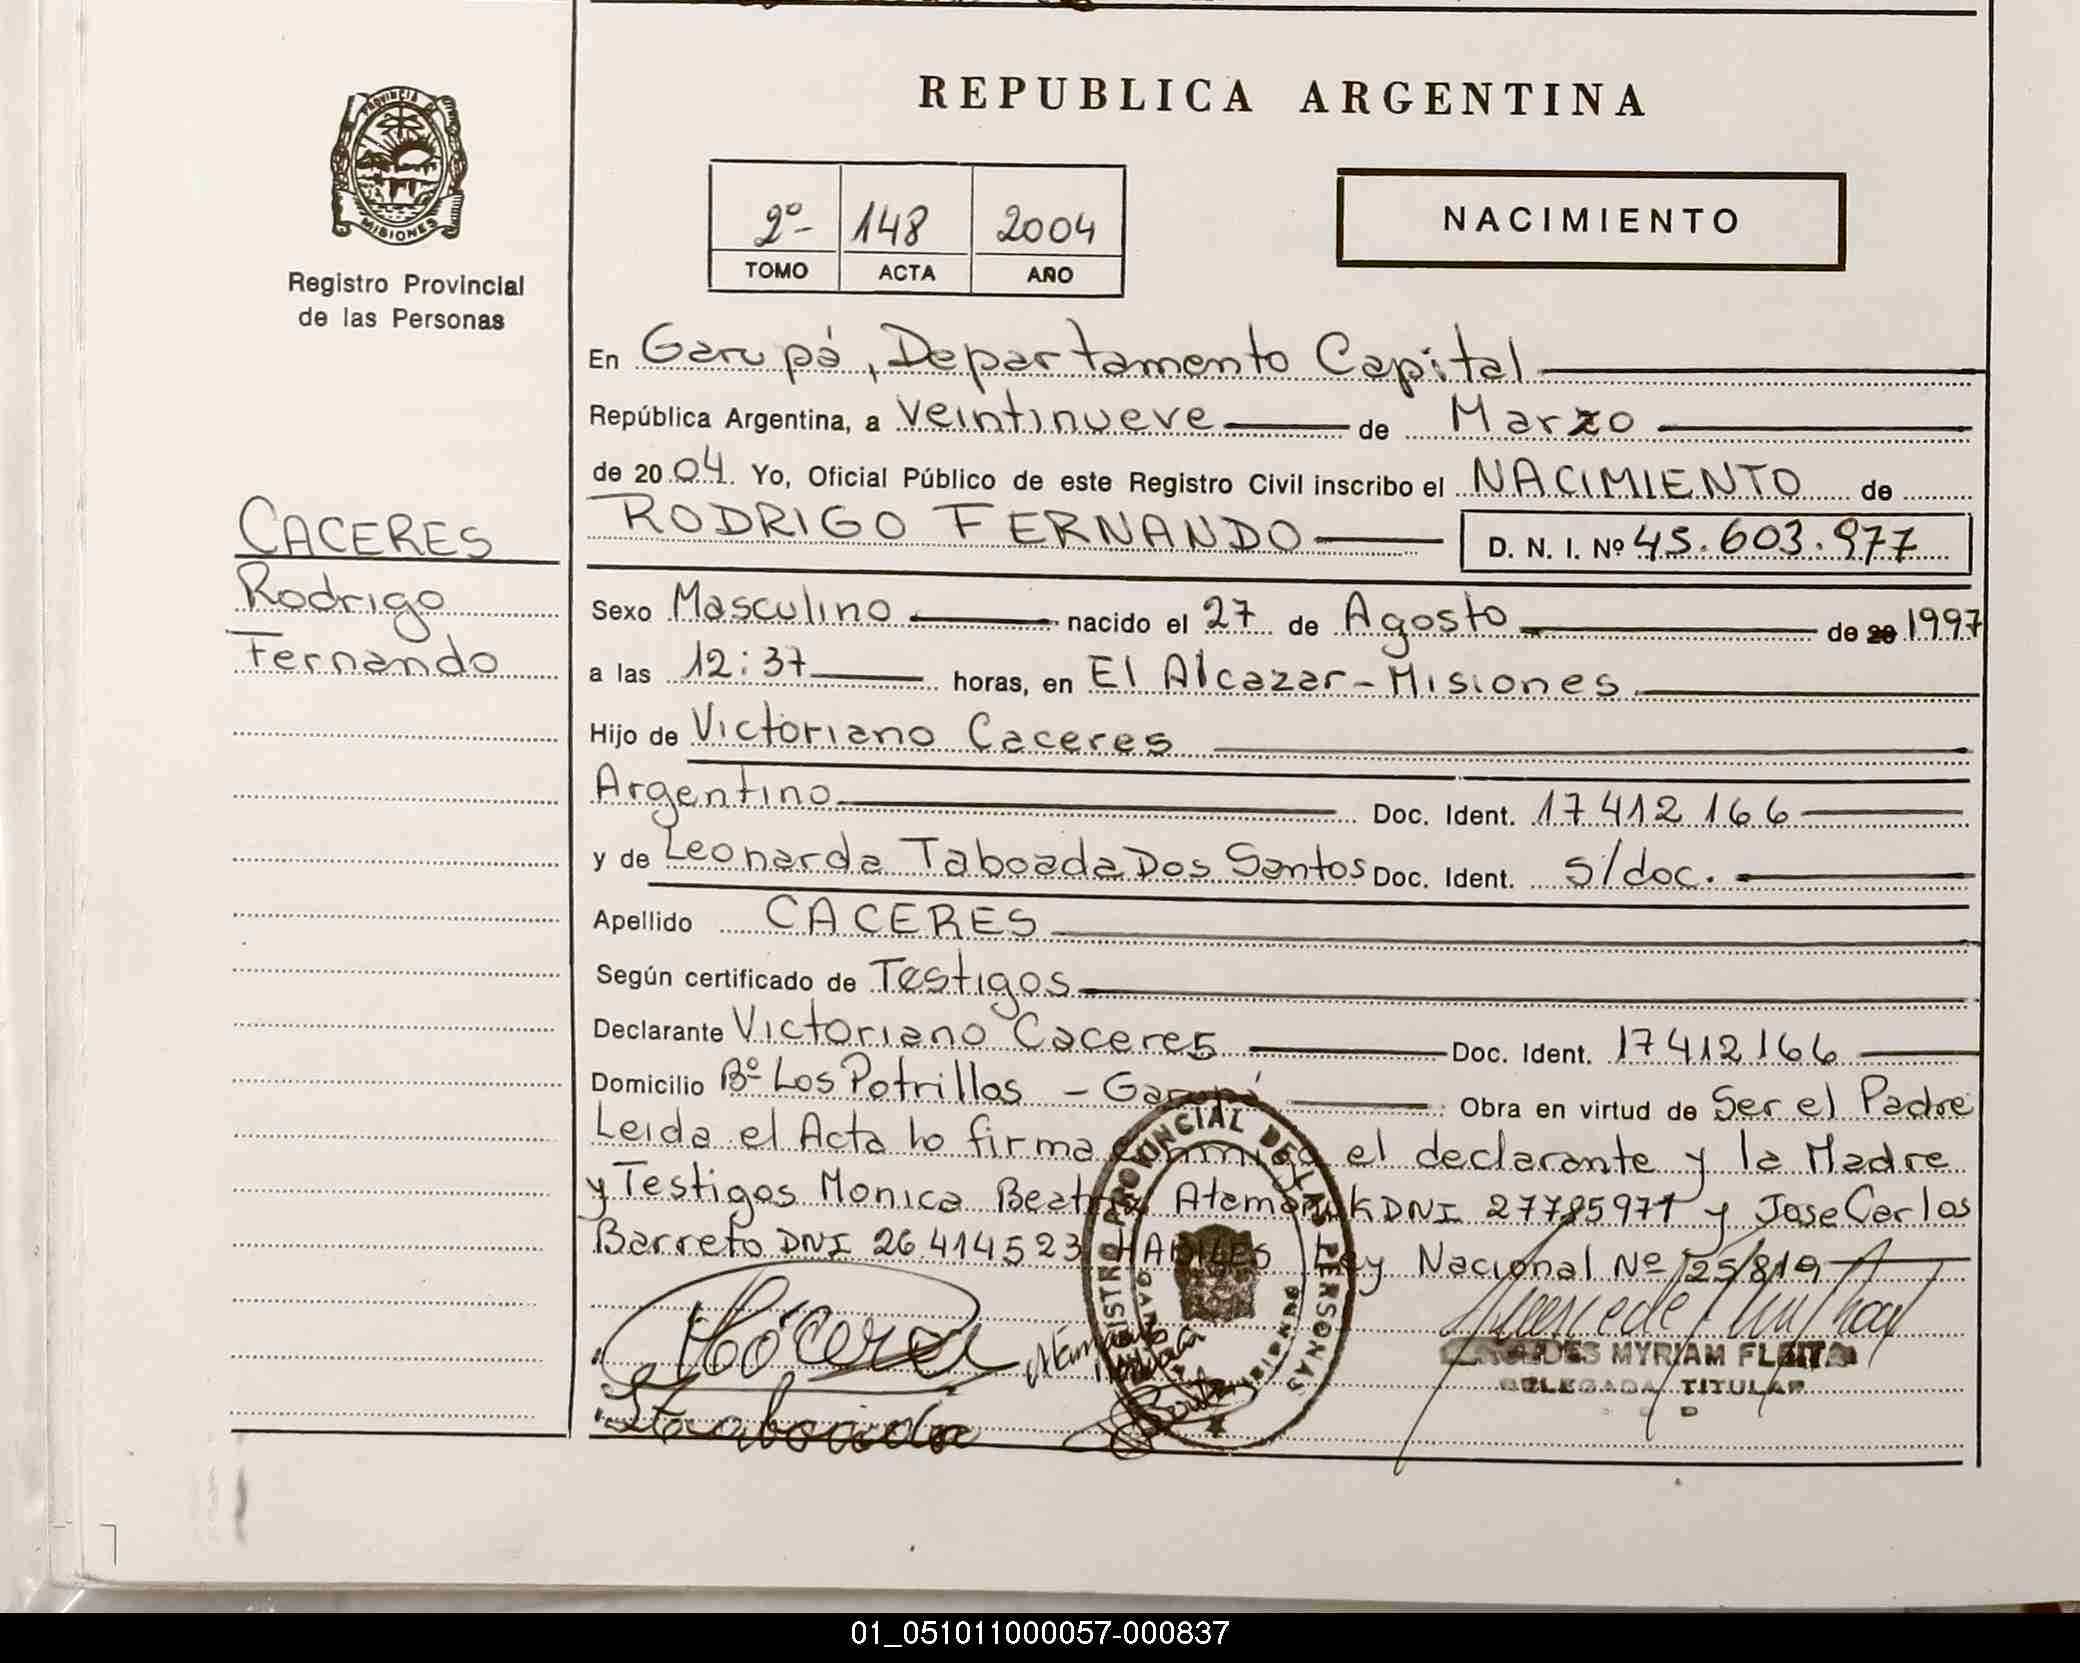 REPUBLICA ARGENTINA
PROVINCIA DE
MISIONES
Registro Provincial
de las Personas
2º- 148 2004
TOMO ACTA AÑO
NACIMIENTO
En Garupá, Departamento Capital
República Argentina, a Veintinueve de Marzo
de 2004. Yo, Oficial Público de este Registro Civil inscribo el NACIMIENTO de
RODRIGO FERNANDO D. N. I. Nº 45.603.977
CACERES
Rodrigo
Fernando
Sexo Masculino nacido el 27 de Agosto de 20 1997
a las 12:37 horas, en El Alcazar - Misiones
Hijo de Victoriano Caceres
Argentino Doc. Ident. 17412166
y de Leonarda Taboada Dos Santos Doc. Ident. s/doc.
Apellido CACERES
Según certificado de Testigos
Declarante Victoriano Caceres Doc. Ident. 17412166
Domicilio Bº Los Potrillos - Garupá Obra en virtud de Ser el Padre
Leida el Acta lo firma conmigo el declarante y la Madre
y Testigos Monica Beatriz DNI y Jose Carlos
Barreto DNI 26414523 HABILES Ley Nacional Nº 25/819
REGISTRO PROVINCIAL DE LAS PERSONAS
MYRIAM FLEITA
DELEGADA TITULAR
Taboada
01_051011000057-000837